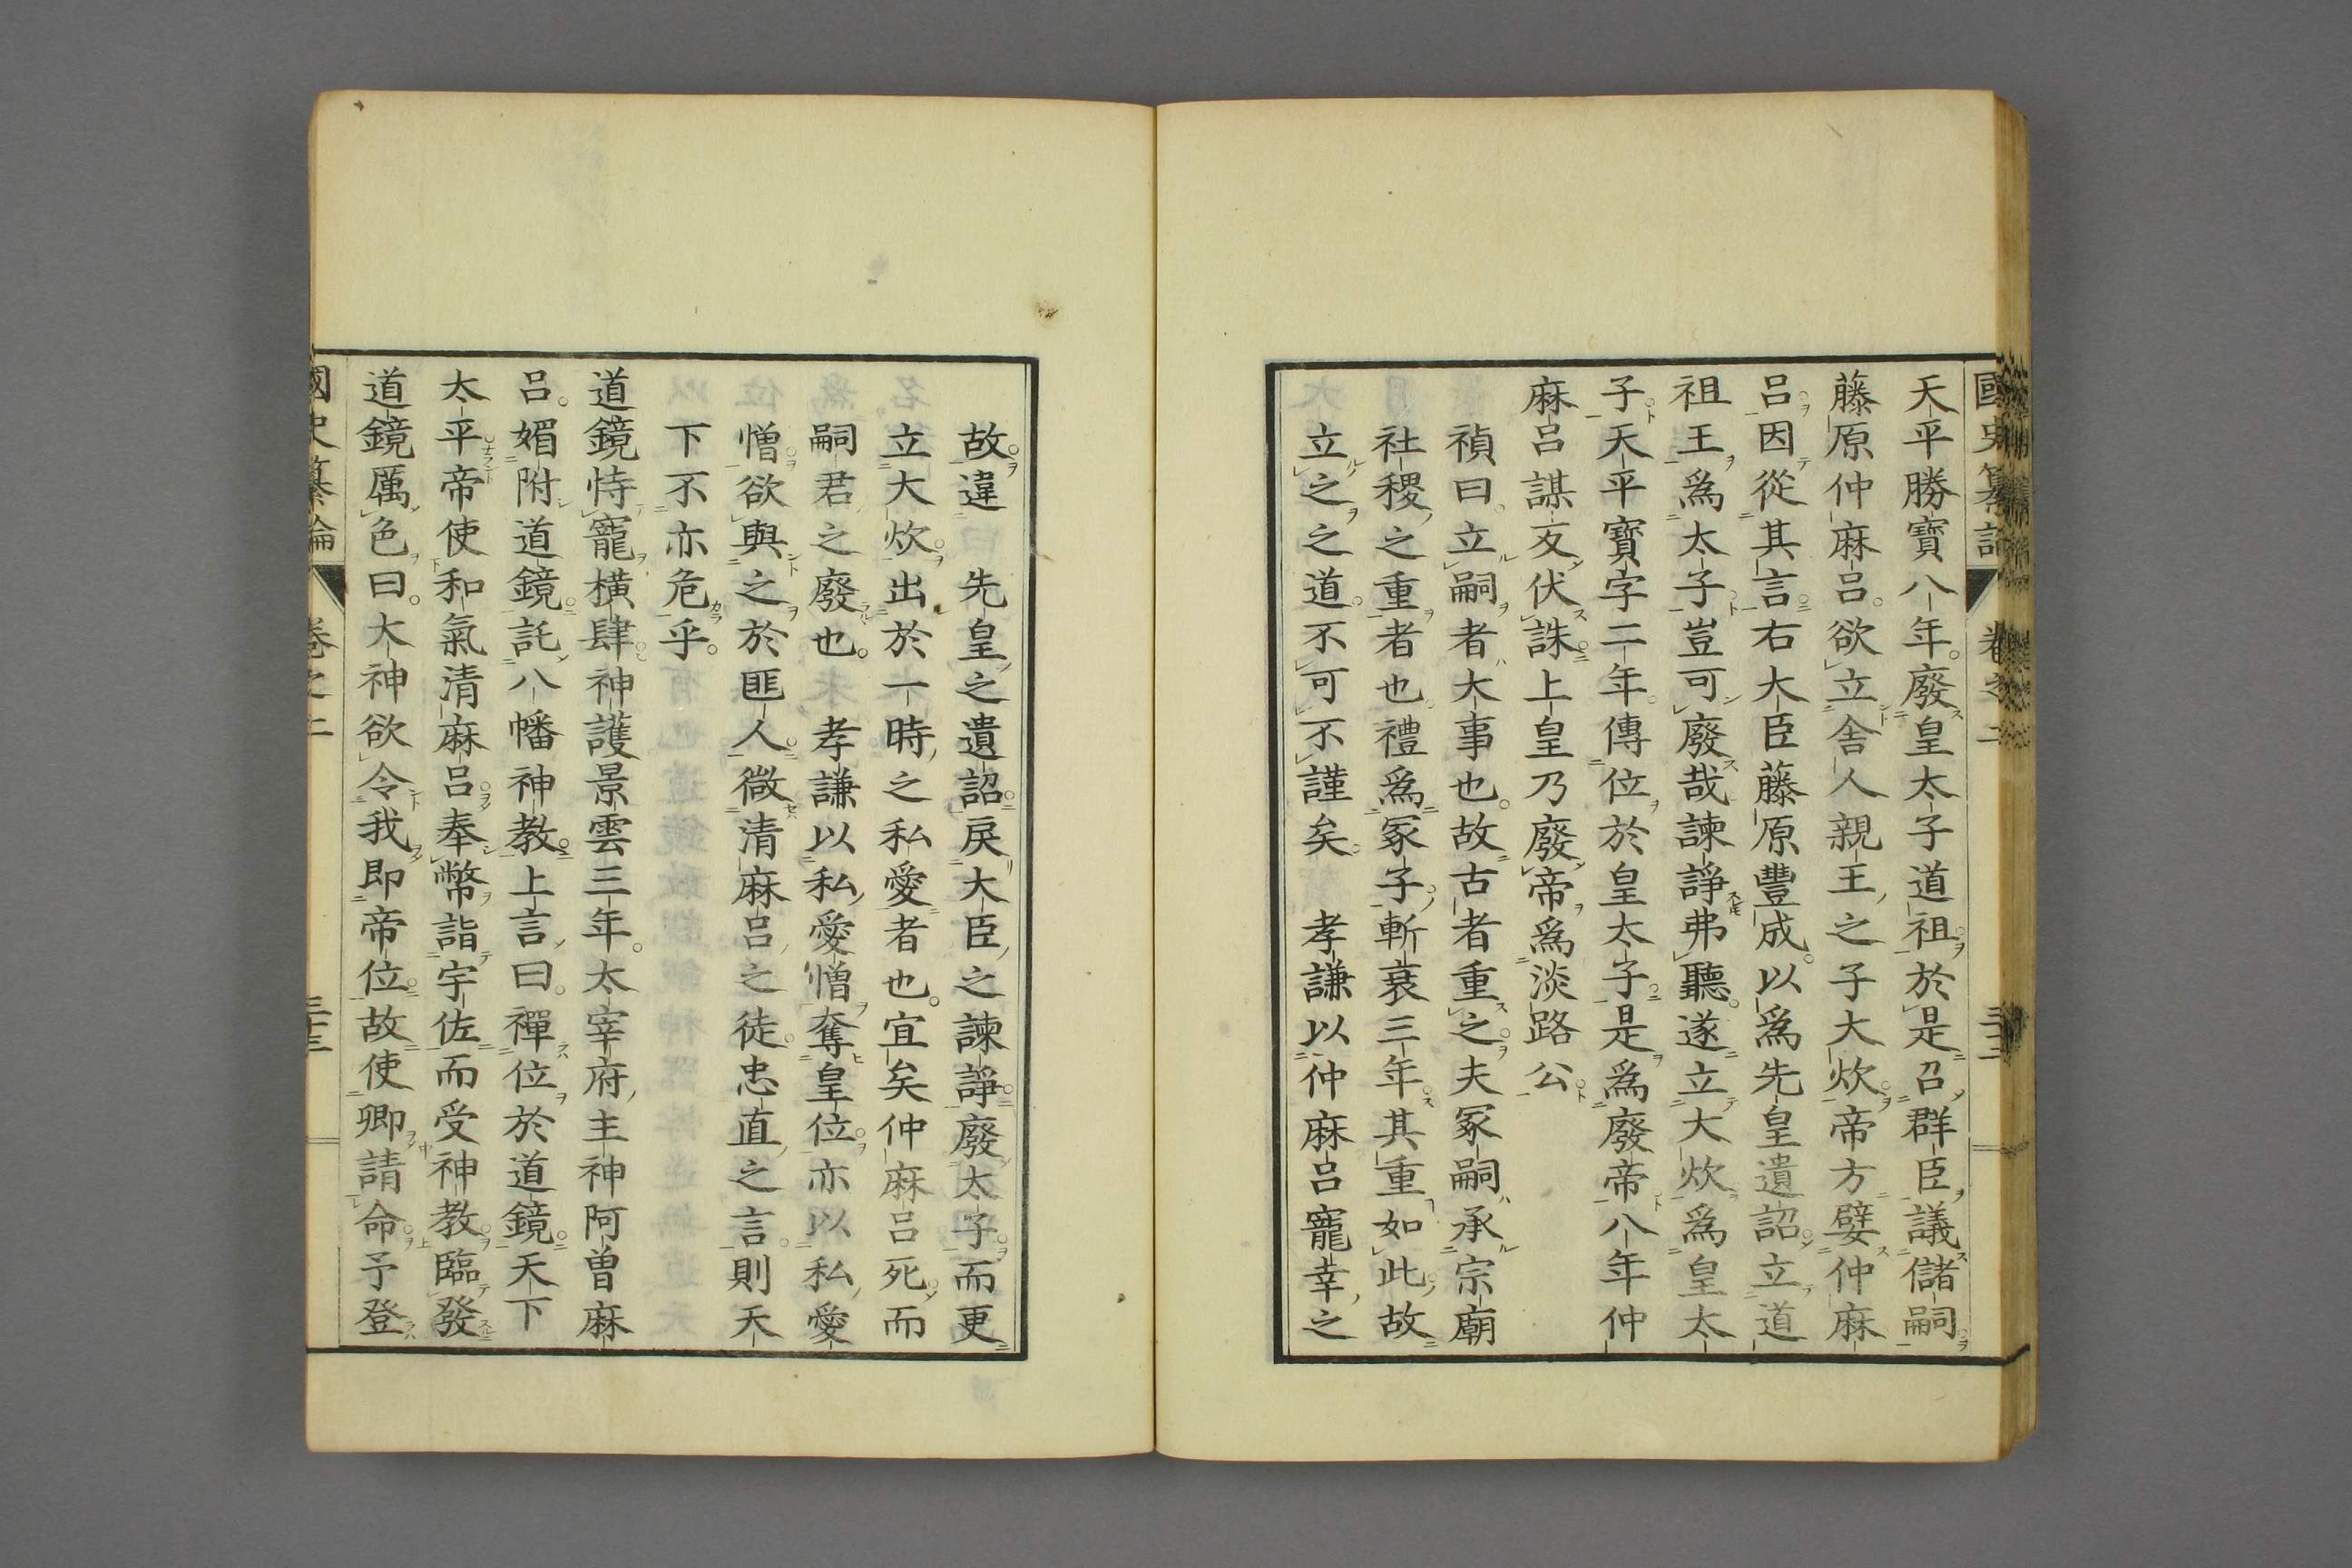 國史纂論 卷之二
天平勝寶八年。廢皇太子道祖。於是召群臣議儲嗣。
藤原仲麻呂。欲立舍人親王之子大炊。帝方嬖仲麻
呂。因從其言。右大臣藤原豐成。以爲先皇遺詔立道
祖王爲太子。豈可廢哉諫諍弗聽。遂立大炊爲皇太
子。天平寶字二年。傳位於皇太子。是爲廢帝。八年仲
麻呂謀反伏誅。上皇乃廢帝爲淡路公。
禎曰。立嗣者大事也。故古者重之。夫冢嗣承宗廟
社稷之重者也。禮爲冢子。斬衰三年。其重如此。故
立之之道。不可不謹矣。 孝謙以仲麻呂寵幸之
故。違 先皇之遺詔。戾大臣之諫諍。廢太子。而更
立大炊。出於一時之私愛者也。宜矣仲麻呂死。而
嗣君之廢也。 孝謙以私愛憎奪皇位。亦以私愛
憎。欲與之於匪人。微清麻呂之徒。忠直之言。則天
下不亦危乎。
道鏡恃寵橫肆。神護景雲三年。太宰府主神阿曽麻
呂。媚附道鏡。託八幡神教。上言曰。禪位於道鏡。天下
太平。帝使和氣清麻呂。奉幣詣宇佐而受神教。臨發
道鏡厲色曰。大神欲令我即帝位。故使卿請命。予登
國史纂論 卷之二 三十三